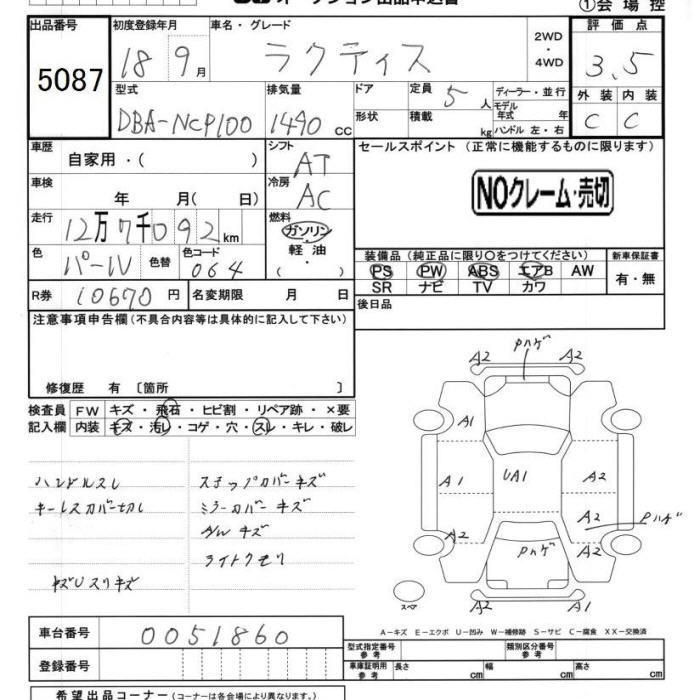 オークション出品申込書
①会場控
出品番号 初度登録年月 車名・グレード 評価点
5087
18 9月 ラクティス 2WD・4WD 3.5
型式 排気量 ドア 定員 5人 ディーラー・並行 外装 内装
DBA-NCP100 1490 cc 形状 積載 kg モデル年式 年 ハンドル 左・右 C C
車歴 自家用・( ) シフト AT セールスポイント (正常に機能するものに限ります)
車検 年 月( 日) 冷房 AC NOクレーム・売切
走行 12万7千092km 燃料 ガソリン・軽油 ( )
色 パール 色替 色コード 064
装備品 (純正品に限り○をつけてください) 新車保証書
PS PW ABS エアB AW 有・無
SR ナビ TV カワ
R券 10670円 名変期限 月 日 後日品
注意事項申告欄(不具合内容等は具体的に記入して下さい)
修復歴 有 〔箇所 〕
検査員 FW キズ・飛石・ヒビ割・リペア跡・×要
記入欄 内装 キズ・汚レ・コゲ・穴・スレ・キレ・破レ
ハンドルスレ ステップカバーキズ
キーレスカバー切れ ミラーカバーキズ
A/Wキズ
ライトクモリ
A2 Pハゲ A2
A1
A1 UA1 A2
A2 Pハゲ
A2 Pハゲ A2
スペア A2 A1
A-キズ E-エクボ U-凹み W-補修跡 S-サビ C-腐食 XX-交換済
車台番号 0051860 型式指定番号 参考 類別区分番号 参考
登録番号 車庫証明用 参考 長さ cm 幅 cm 高さ cm
希望出品コーナー(コーナーは各会場により異なります。)